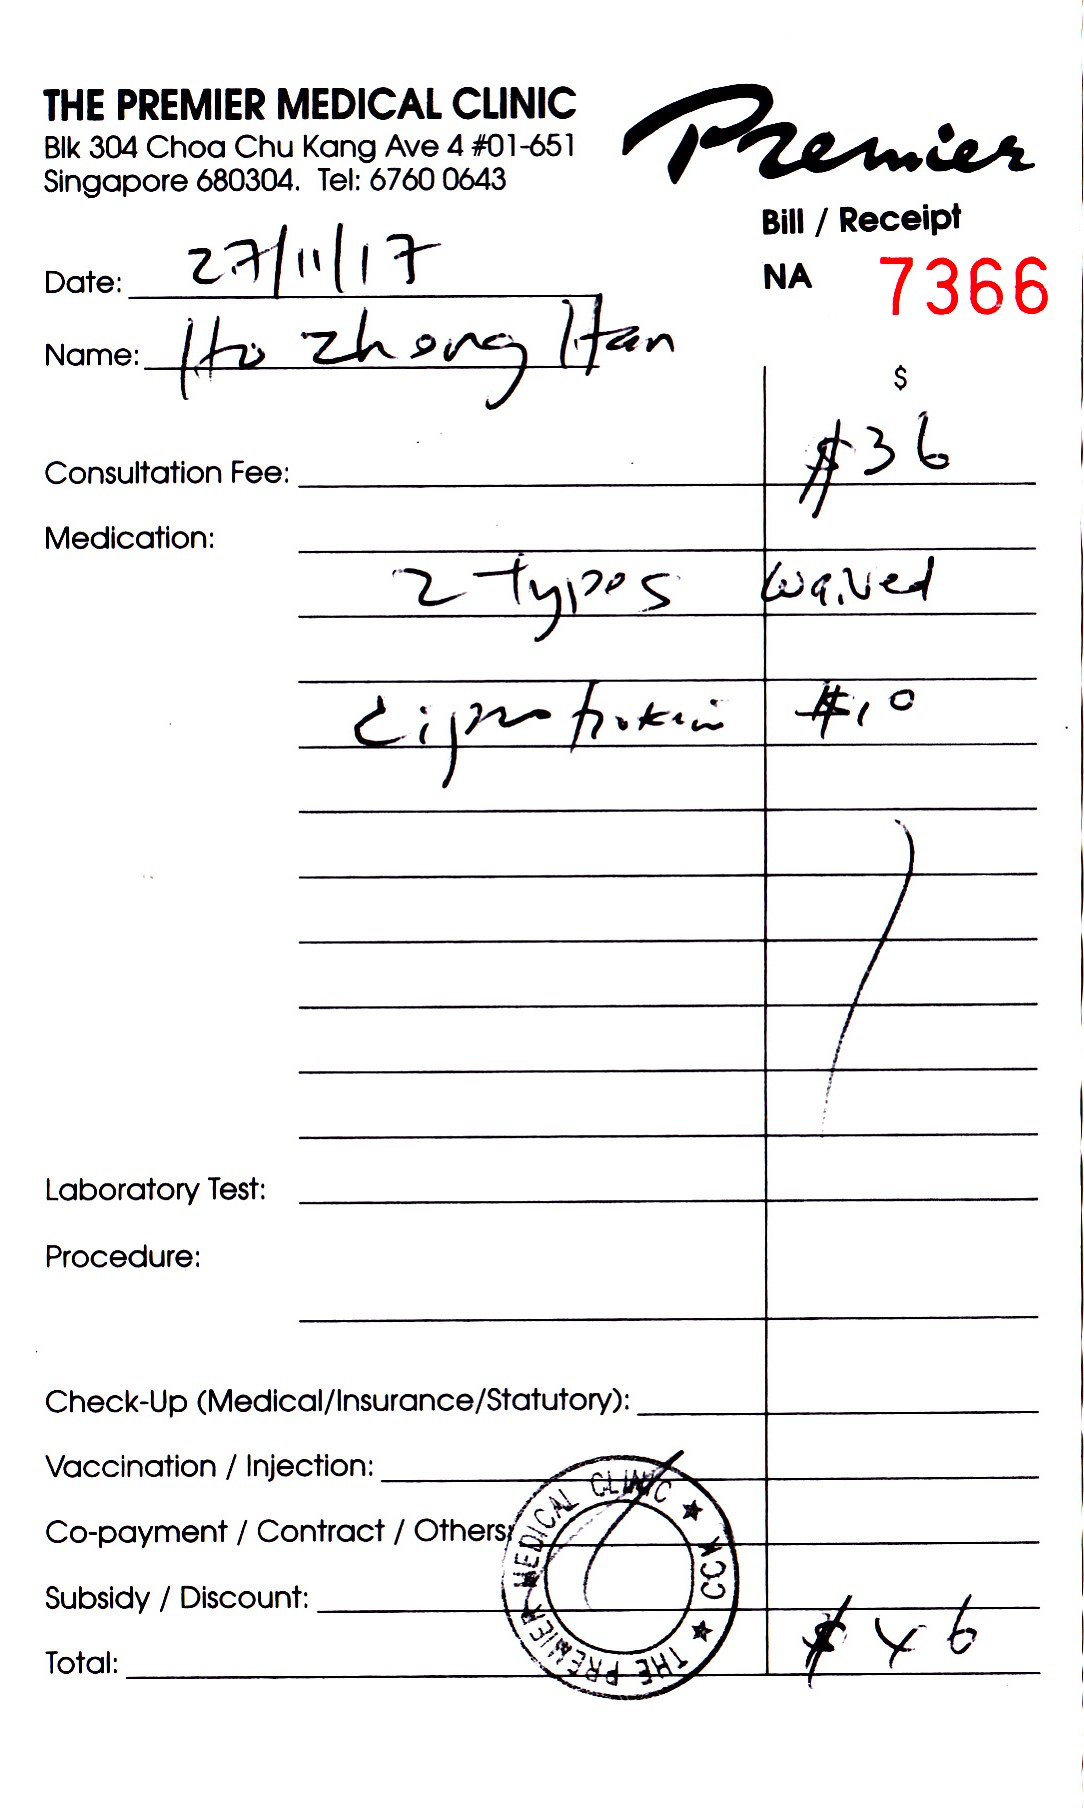 THE PREMIER MEDICAL CLINIC
Blk 304 Choa Chu Kang Ave 4 #01-651
Singapore 680304. Tel: 6760 0643
Premier
Bill / Receipt
NA 7366
Date: 27/11/17
Name: Ho Zhong Han
$
Consultation Fee: $36
Medication:
2 types waived
$10
Laboratory Test:
Procedure:
Check-Up (Medical/Insurance/Statutory):
Vaccination / Injection:
Co-payment / Contract / Others:
Subsidy / Discount:
Total: $46
THE PREMIER MEDICAL CLINIC ★ CCK ★